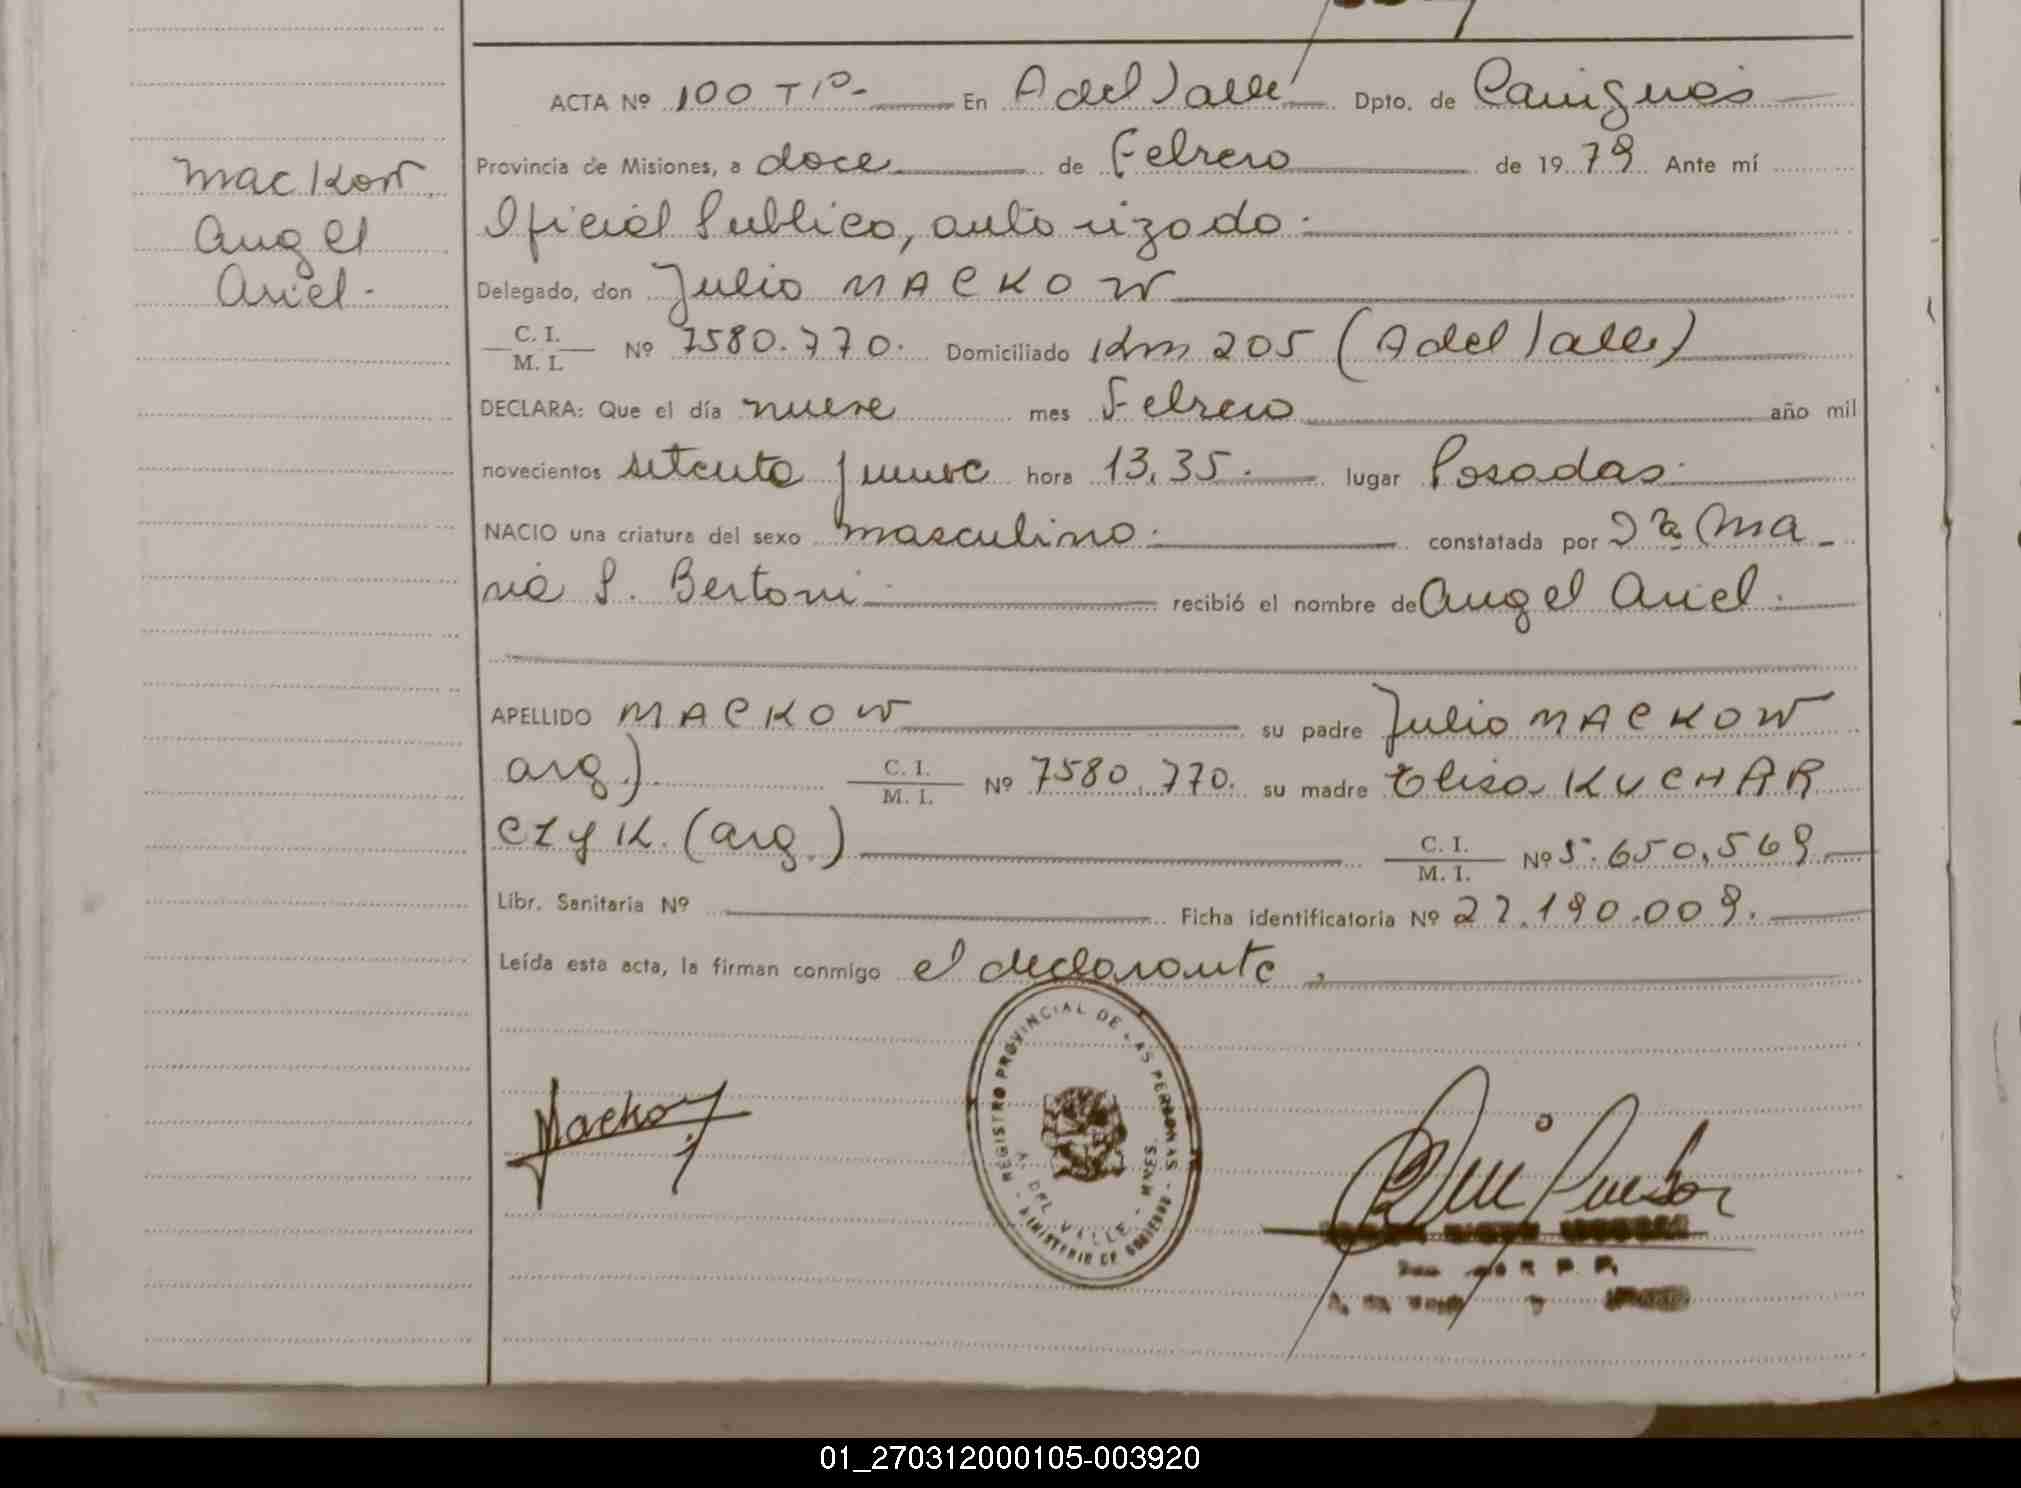 Mackow
Angel
Ariel.-
ACTA Nº 100 Tº- En A del Valle Dpto. de Cainguás
Provincia de Misiones, a doce de Febrero de 1979 Ante mí
Oficial Publico, autorizado.-
Delegado, don Julio MACKOW
C. I.
M. I. Nº 7580.770. Domiciliado Km 205 (A del Valle)
DECLARA: Que el día nueve mes Febrero año mil
novecientos setenta y nueve hora 13,35.- lugar Posadas.-
NACIO una criatura del sexo masculino.- constatada por Dra Ma-
ria S. Bertoni recibió el nombre de Angel Ariel.-
APELLIDO MACKOW su padre Julio MACKOW
arg.) C. I.
M. I. Nº 7580.770. su madre Elisa KUCHAR
CZYK. (arg.) C. I.
M. I. Nº 5.650.569
Libr. Sanitaria Nº Ficha identificatoria Nº 27.190.009.
Leída esta acta, la firman conmigo el declarante.
Mackow J.
REGISTRO PROVINCIAL DE LAS PERSONAS
A. DEL VALLE - MNES.
MINISTERIO DE GOBIERNO
01_270312000105-003920